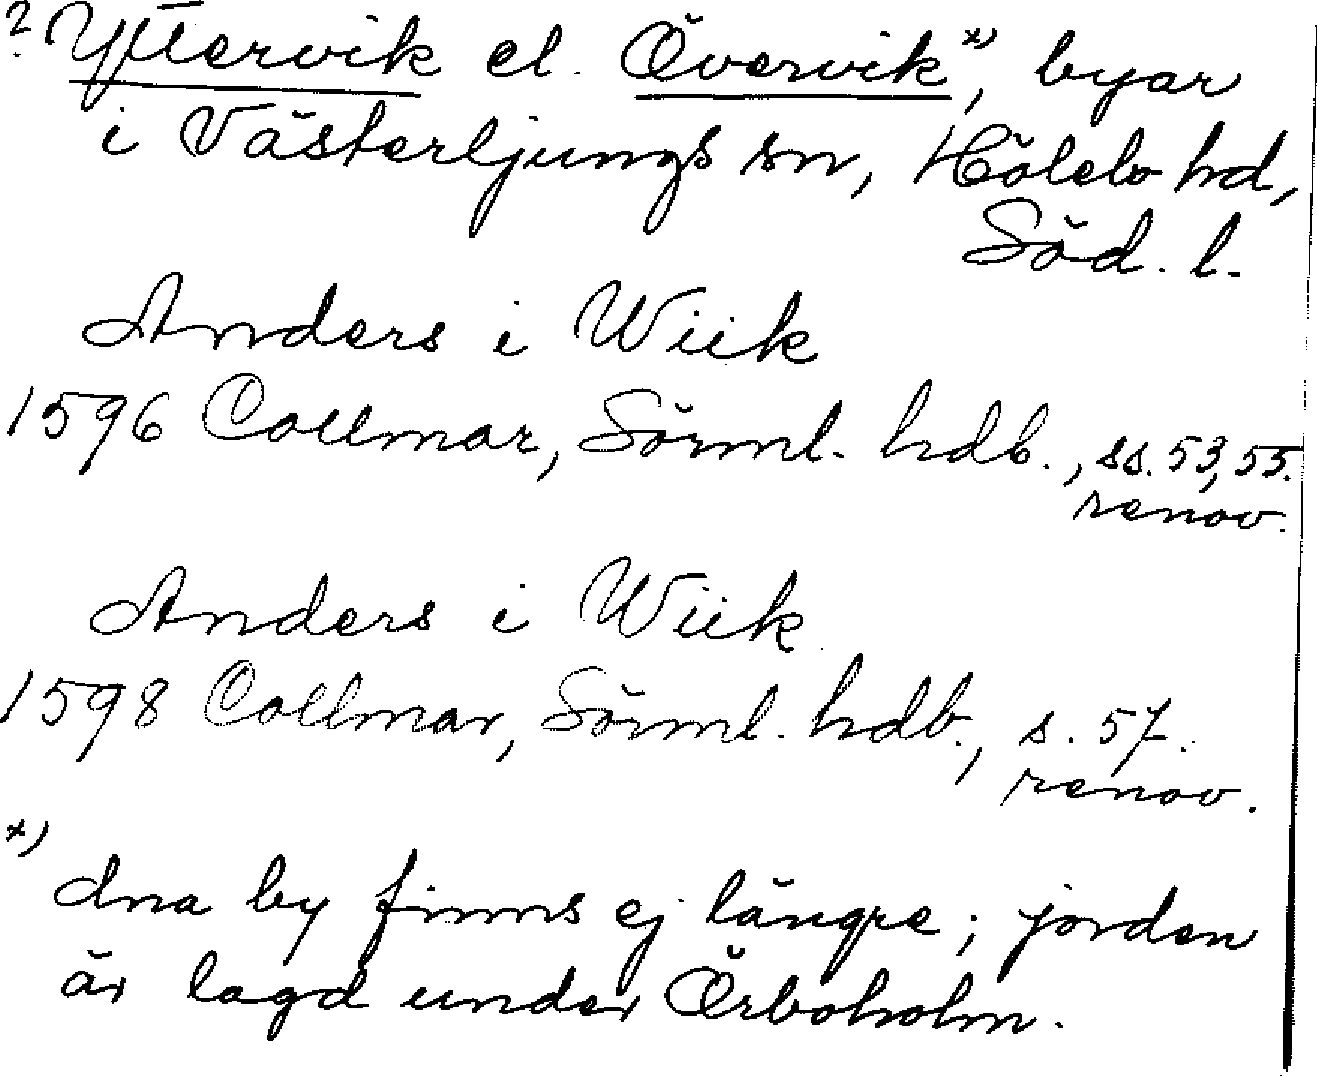 ? Yttervik el. Övervik x), byar
i Västerljungs sn, Hölebo hd,
Söd. l.
Anders i Wiik
1596 Collmar, Sörml. hdb., ss. 53, 55.
renov.
Anders i Wiik
1598 Collmar, Sörml. hdb., s. 57.
renov.
x)
dna by finns ej längre; jorden
är lagd under Örboholm.